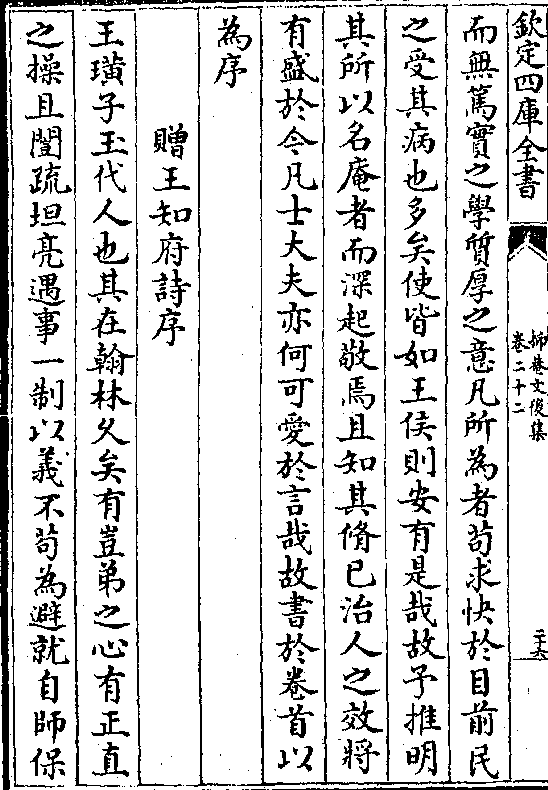 欽定四庫全書
抑菴文後集
卷二十二
二十六
而無篤實之學質厚之意凡所為者苟求快於目前民
之受其病也多矣使皆如王侯則安有是哉故予推明
其所以名庵者而深起敬焉且知其脩已治人之效將
有盛於今凡士大夫亦何可愛於言哉故書於卷首以
為序
贈王知府詩序
王璜子玉代人也其在翰林乆矣有豈弟之心有正直
之操且闓疏坦亮遇事一制以義不苟為避就自師保